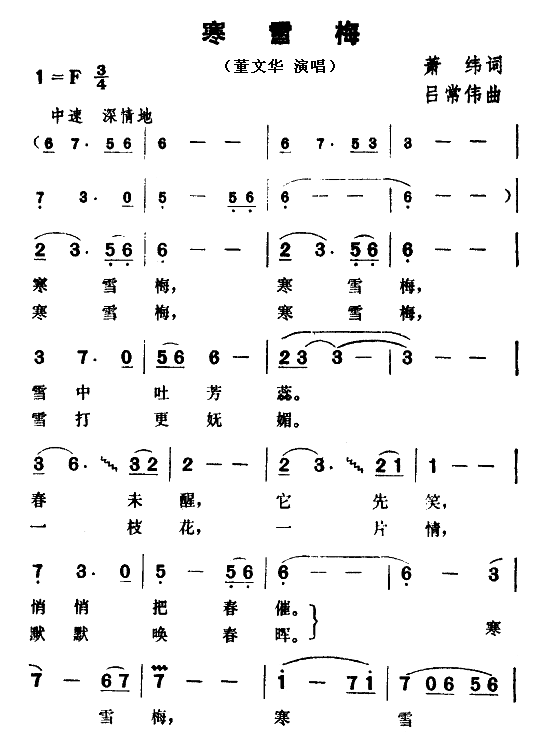 寒雪梅
（董文华 演唱）
1=F 3/4
萧 纬词
吕常伟曲
中速 深情地
（6 7· 56 | 6 - - | 6 7· 53 | 3 - - |
7 3· 0 | 5 - 56 | 6 - - | 6 - - ）|
2 3· 56 | 6 - - | 2 3· 56 | 6 - - |
寒 雪梅， 寒 雪梅，
寒 雪梅， 寒 雪梅，
3 7· 0 | 56 6 - | 23 3 - | 3 - - |
雪中 吐芳 蕊。
雪打 更妩 媚。
3 6· 32 | 2 - - | 2 3· 21 | 1 - - |
春 未醒， 它 先笑，
一 枝花， 一 片情，
7 3· 0 | 5 - 56 | 6 - - | 6 - 3 |
悄悄 把春 催。
默默 唤春 晖。
寒
7 - 67 | 7 - - | i - 7i | 7 06 56 |
雪 梅， 寒 雪